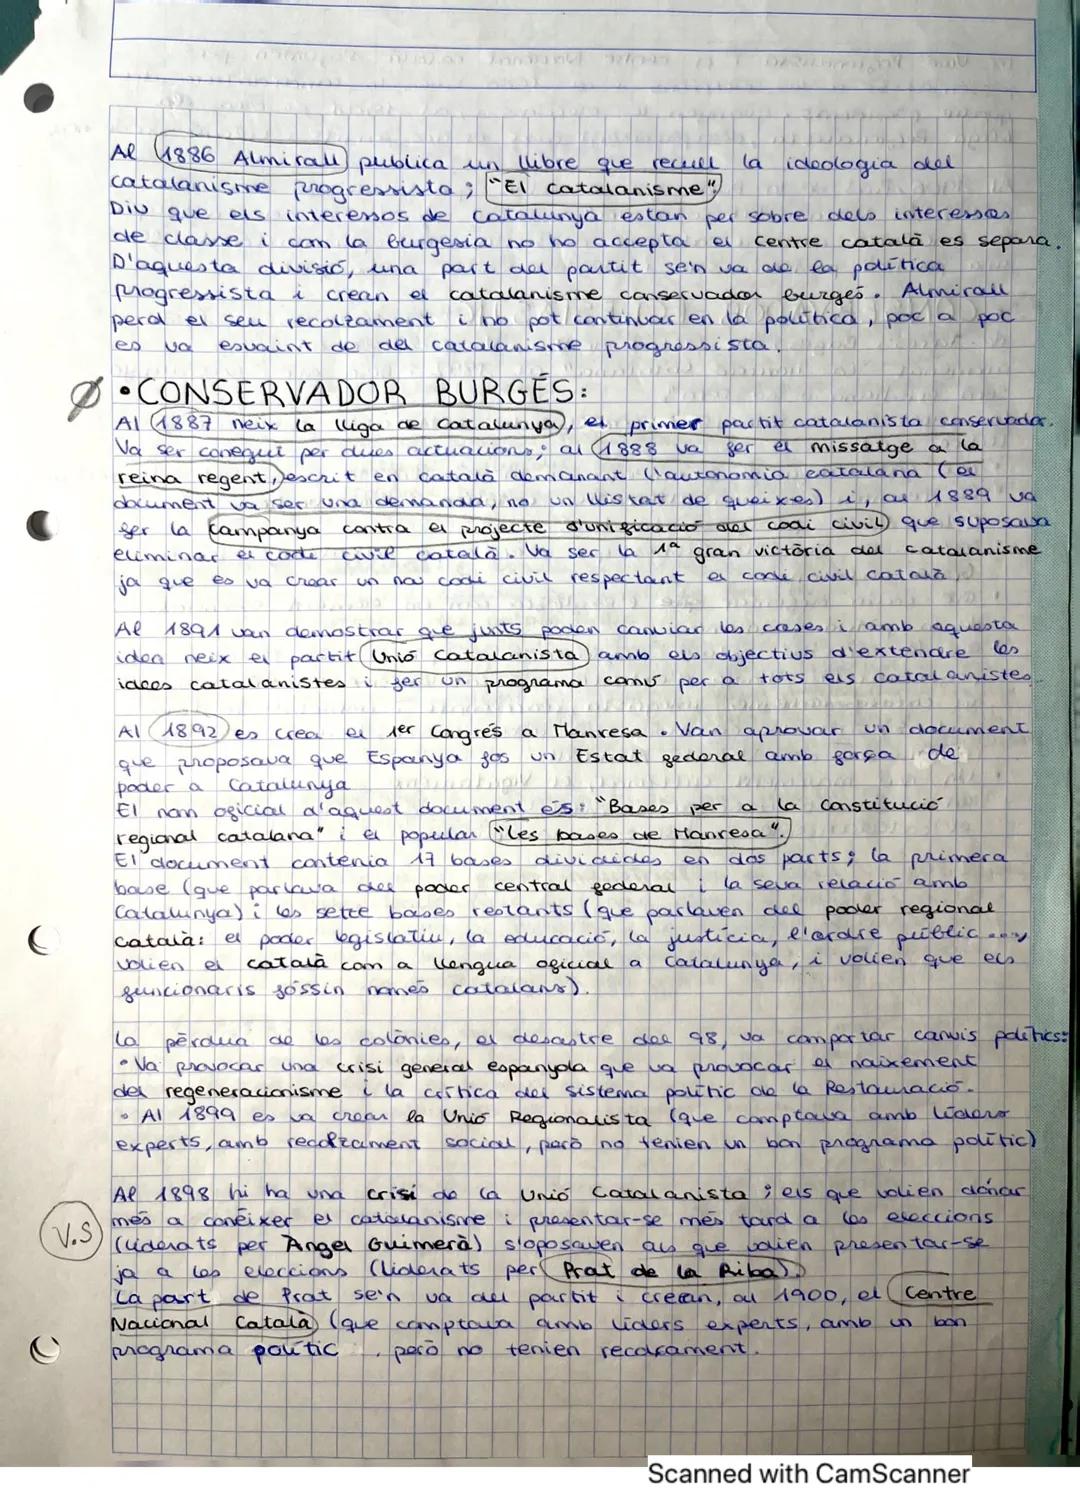 Al 1886 Almirall publica un llibre que recull la ideologia del
catalanisme progressista; "El catalanisme"
Diu que els interessos de Catalunya estan per sobre dels interessos
de classe i com la burgesia no ho accepta el centre català es separa.
D'aquesta divisió, una part del partit se'n va de la política
progressista i crean el catalanisme conservador burgés. Almirall
perd el seu recolzament i no pot continuar en la política, poc a poc
es va esvaint de del catalanisme progressista.
• CONSERVADOR BURGÉS:
Al 1887 neix la lliga de Catalunya, el primer partit catalanista conservador.
Va ser conegut per dues actuacions; al 1888 va fer el missatge a la
reina regent, escrit en català demanant l'autonomia catalana (el
document va ser una demanda, no un llistat de queixes) i, al 1889 va
fer la campanya contra el projecte d'unificació del codi civil que suposava
eliminar el codi civil català. Va ser la 1ª gran victòria del catalanisme
ja que es va crear un nou codi civil respectant el codi civil català.
Al 1891 van demostrar que junts poden canviar les coses i amb aquesta
idea neix el partit Unió Catalanista amb els objectius d'extendre les
idees catalanistes i fer un programa comú per a tots els catalanistes.
Al 1892 es crea el 1er Congrés a Manresa. Van aprovar un document
que proposava que Espanya fos un Estat federal amb força de
poder a Catalunya
El nom oficial d'aquest document és: "Bases per a la Constitució
regional catalana" i el popular "les bases de Manresa".
El document contenia 17 bases dividides en dos parts; la primera
base (que parlava del poder central federal i la seva relació amb
Catalunya) i les setze bases restants (que parlaven del poder regional
català: el poder legislatiu, la educació, la justícia, l'ordre públic ...,
volien el català com a llengua oficial a Catalunya, i volien que els
funcionaris fóssin només catalans).
La pèrdua de les colònies, el desastre del 98, va comportar canvis polítics:
• Va provocar una crisi general espanyola que va provocar el naixement
del regeneracionisme i la crítica del sistema polític de la Restauració.
• Al 1899 es va crear la Unió Regionalista (que comptava amb líders
experts, amb recolzament social, però no tenien un bon programa polític)
Al 1898 hi ha una crisi de la Unió Catalanista; els que volien dónar
V.S
més a conèixer el catalanisme i presentar-se més tard a les eleccions
(liderats per Àngel Guimerà) s'oposaven als que volien presentar-se
ja a les eleccions (liderats per Prat de la Riba).
La part de Prat se'n va del partit i crean, al 1900, el Centre
Nacional Català (que comptava amb líders experts, amb un bon
programa polític, però no tenien recolzament.
Scanned with CamScanner